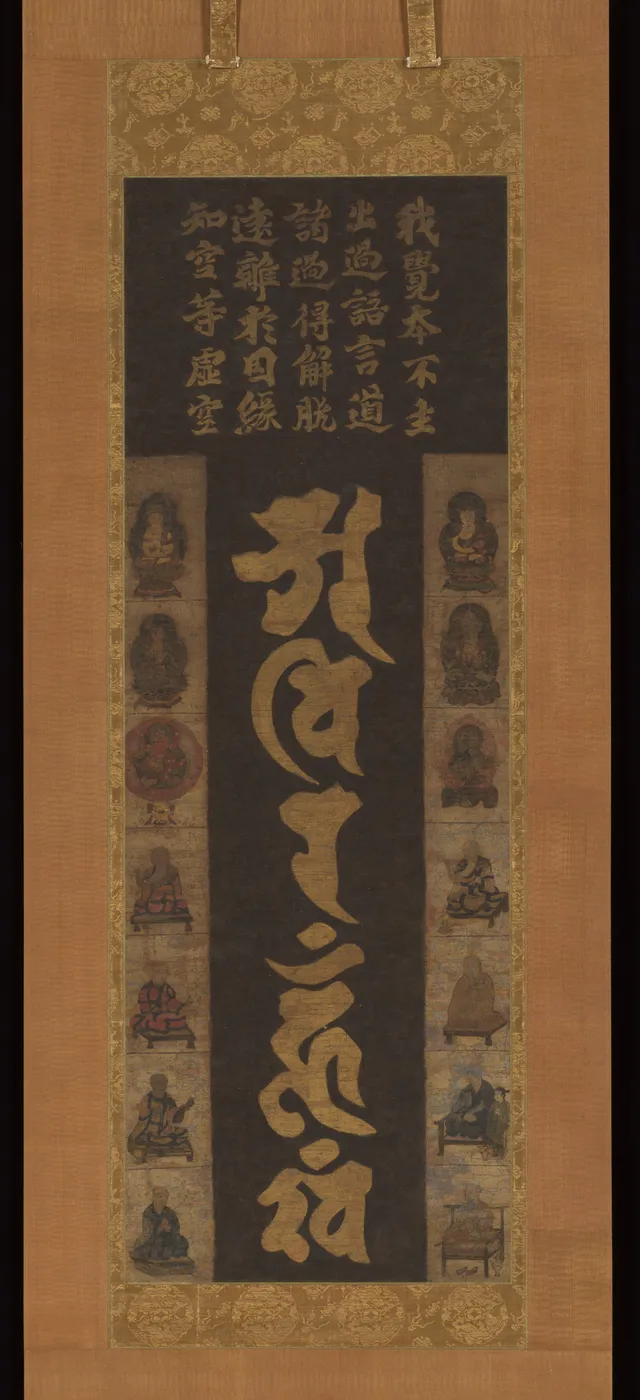 我覺本不生
出過語言道
諸過得解脫
遠離於因緣
知空等虛空
𑖀
𑖪𑖰
𑖨
𑖮𑖳𑖽
𑖏𑖽